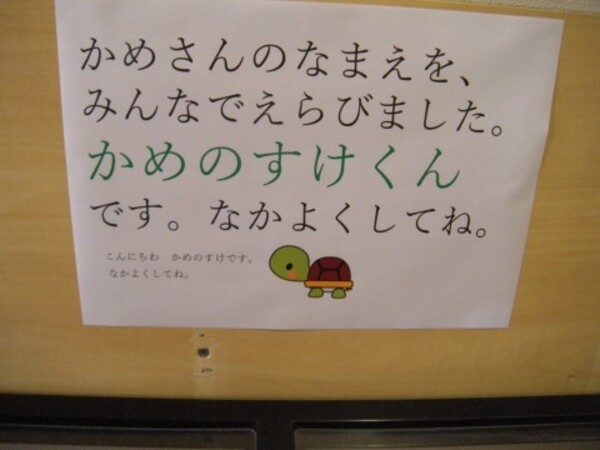 かめさんのなまえを、
みんなでえらびました。
かめのすけくん
です。なかよくしてね。
こんにちわ　かめのすけです。
なかよくしてね。